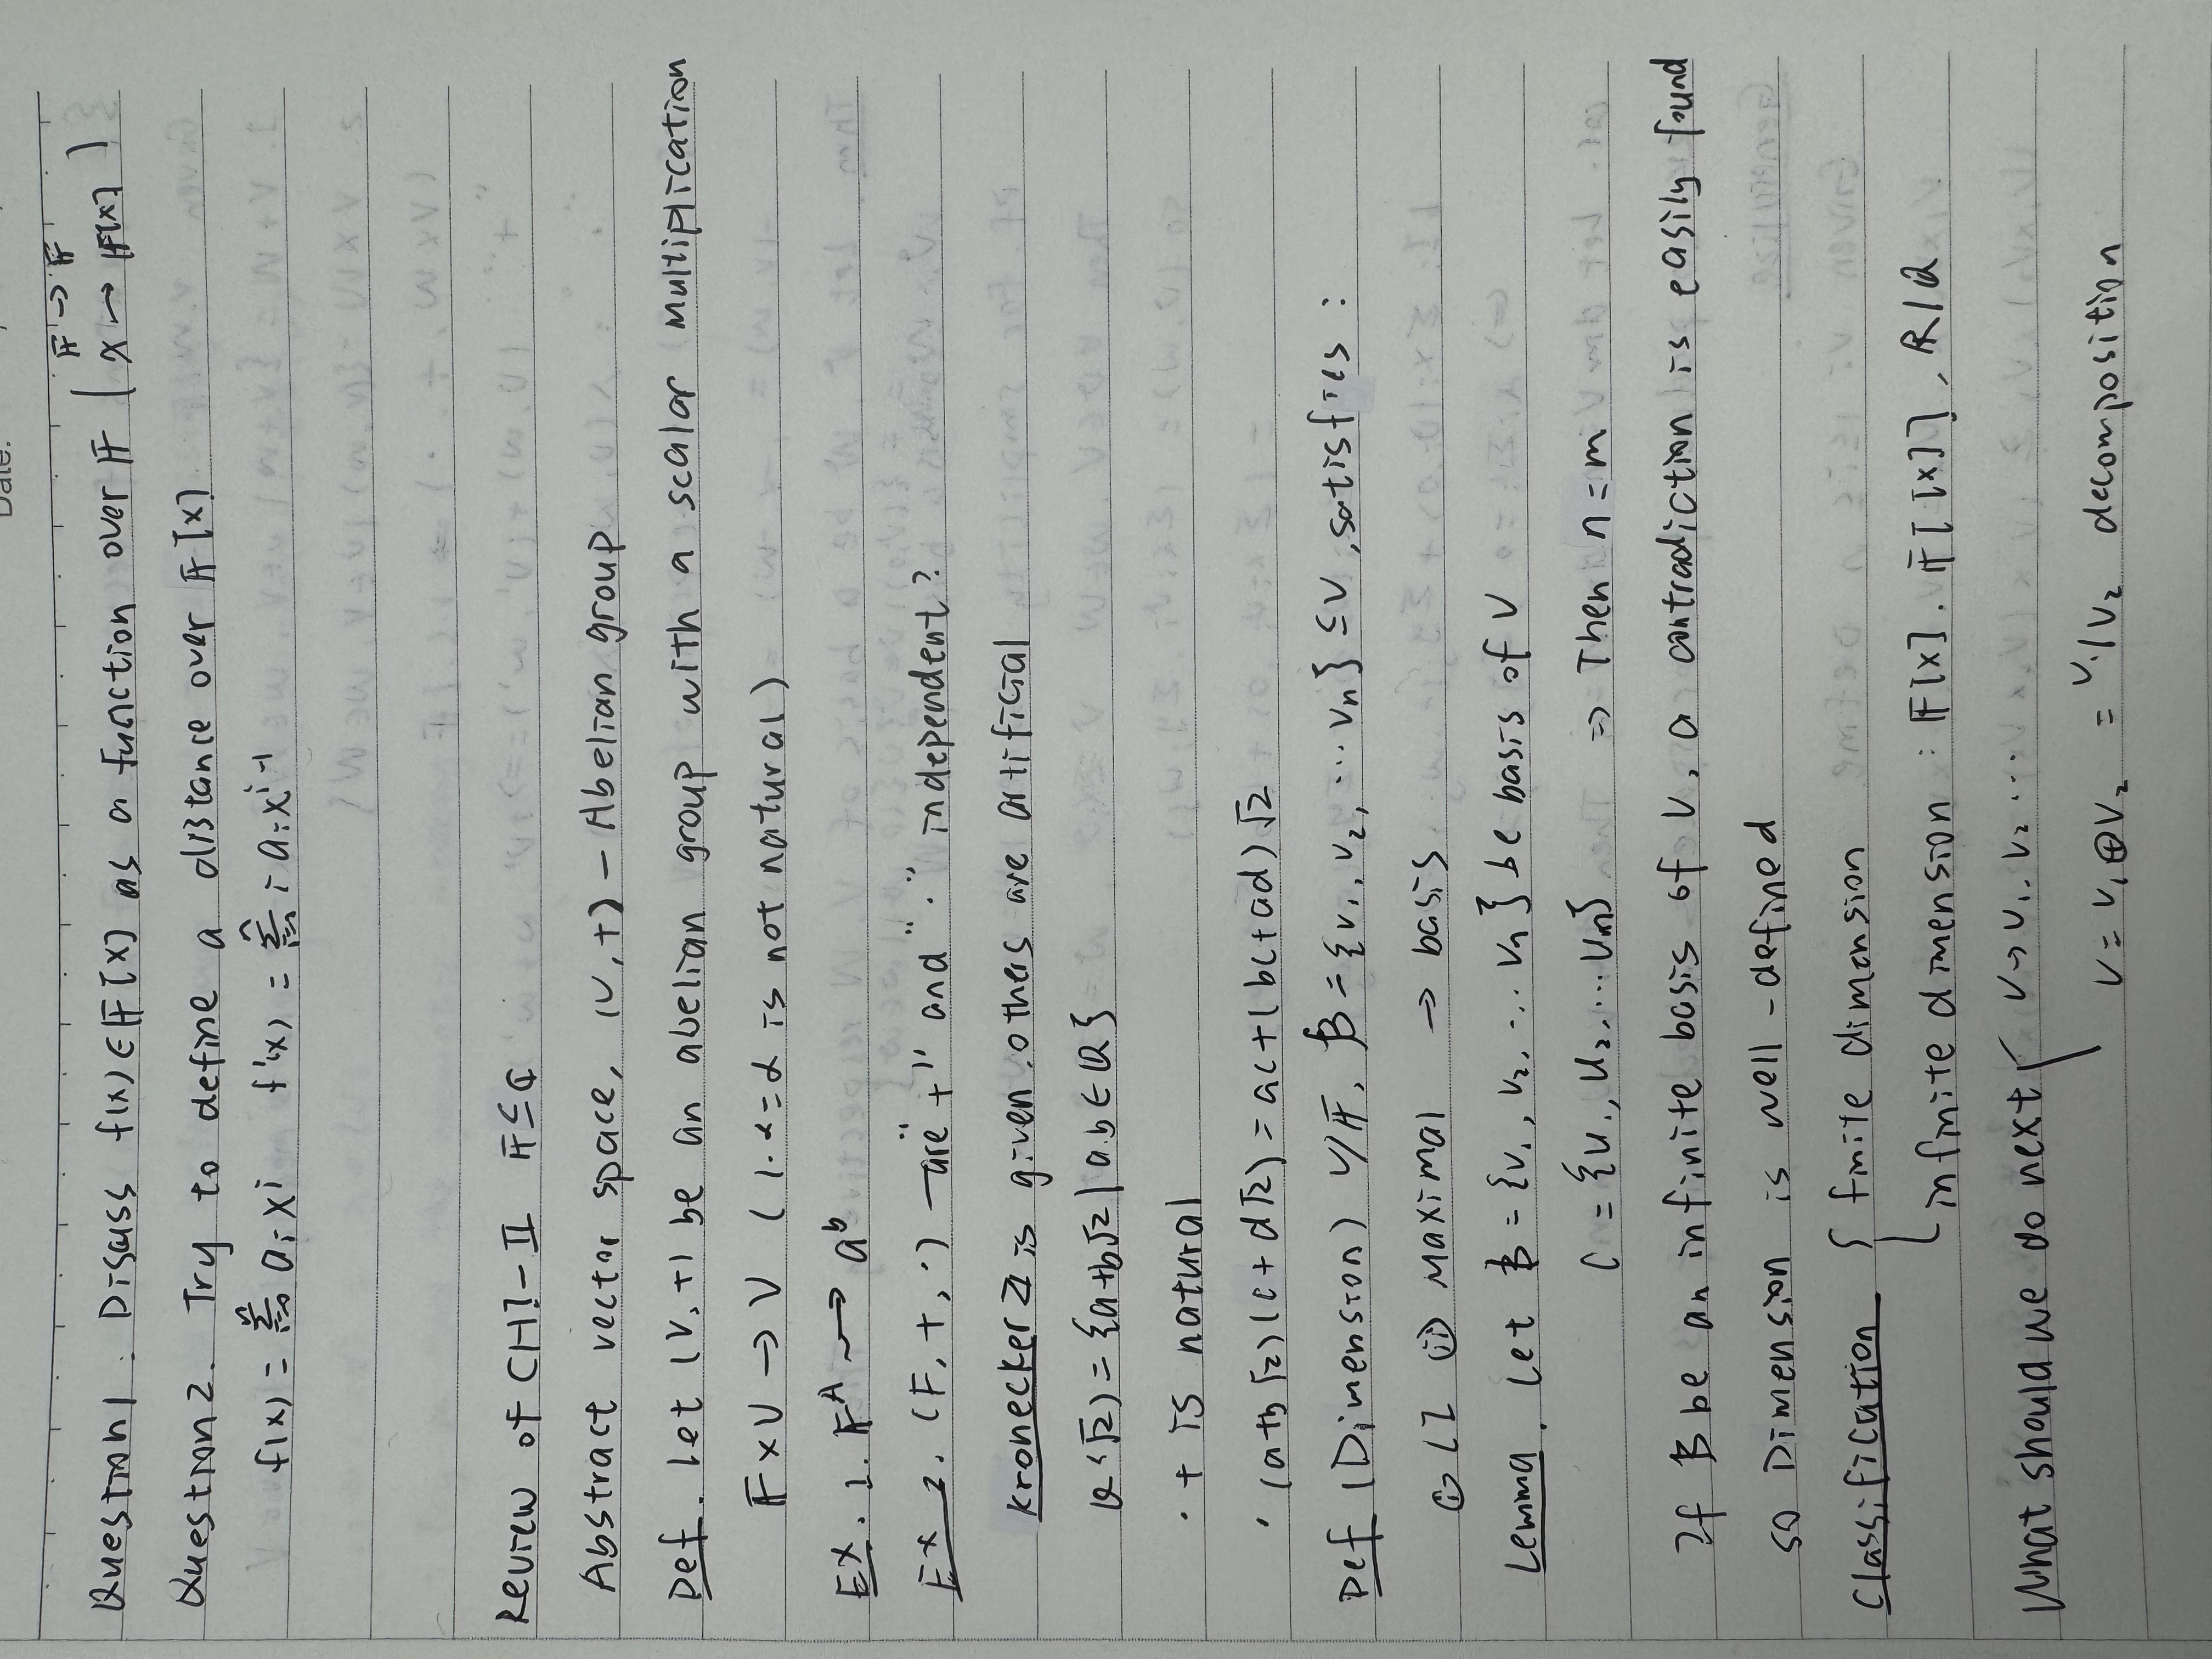 Date:
Question 1. Discuss f(x) ∈ 𝔽[x] as a function over 𝔽 ( 𝔽 → 𝔽
x → 𝔽[x] )
Question 2. Try to define a distance over 𝔽[x]
f(x) = Σ_{i=0}^{n} a_i x^i   f'(x) = Σ_{i=0}^{n} i a_i x^{i-1}
Review of CH1-II  𝔽 ⊆ ℂ
Abstract vector space, (V, +) - Abelian group
Def. Let (V, +) be an abelian group with a scalar multiplication
𝔽 × V → V (1·α = α is not natural)
Ex. 1. 𝔽^A → a^b
Ex 2. (F, +, ·) are "+" and "·" independent?
Kronecker ℤ is given, others are artificial
ℚ(√2) = {a+b√2 | a.b ∈ ℚ}
· + is natural
· (a+b√2)(c+d√2) = ac+(bc+ad)√2
Def (Dimension) V/𝔽, B = {v_1, v_2, ... v_n} ⊆ V, satisfies:
(i) LI (ii) Maximal → basis
Lemma. Let B = {v_1, v_2, ... v_n} be basis of V
C = {u_1, u_2, ... u_m} ⇒ Then n = m
If B be an infinite basis of V, a contradiction is easily found
so Dimension is well-defined
Classification { finite dimension
infinite dimension : 𝔽[x]. 𝔽[[x]], ℝ/ℚ
What should we do next { V → V_1. V_2 ...
V = V_1 ⊕ V_2 = V_1/V_2 decomposition